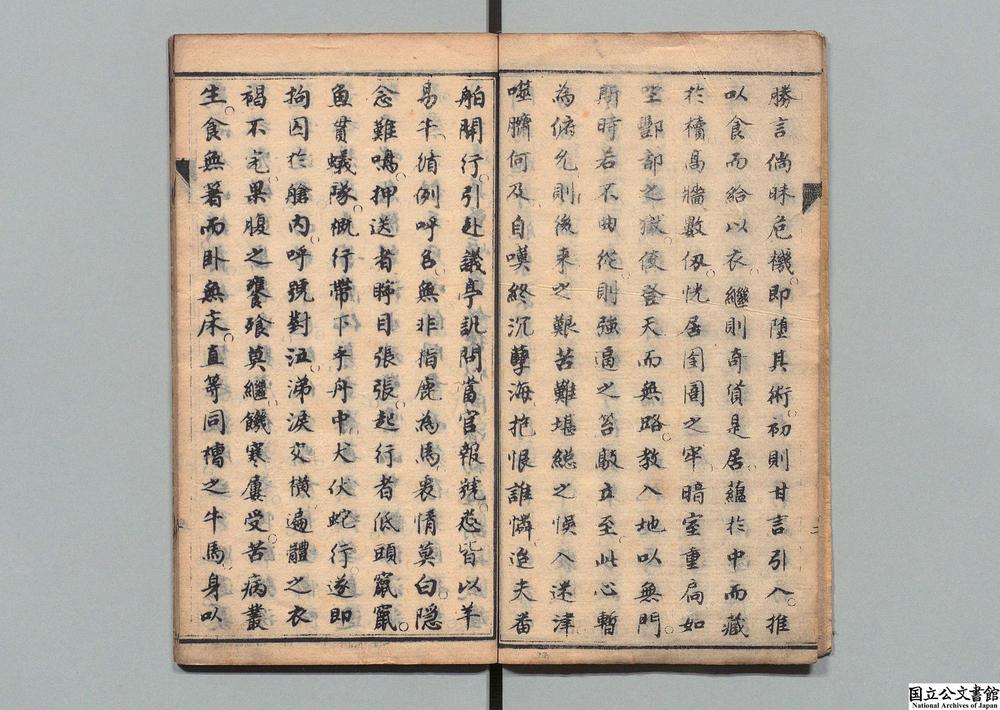 勝言倘昧危機。即墮其術。初則甘言引入。推
以食而給以衣。繼則奇貨是居。蘊於中而藏
於櫝。高牆數仭。恍居囹圄之牢。暗室重扃。如
坐酆部之獄。使登天而無路。教入地以無門。
斯時若不曲從。則強逼之笞毆立至。此心暫
為俯允。則後來之艱苦難堪。總之悞入迷津
噬臍何及。自嘆終沉孽海。抱恨誰憐。迨夫番
舶開行。引赴議亭訊問。當官報號。忽皆以羊
易牛。循例呼名。無非指鹿為馬。衷情莫白。隱
念難鳴。押送者睜目張張。起行者低頭竄竄。
魚貫蟻隊。概行帶下乎舟中。犬伏蛇行。遂即
拘囚於艙內。呼號對泣。涕淚交橫。遍體之衣
褐不完。果腹之饔飱莫繼。饑寒屢受。苦病叢
生。食無箸而卧無床。直等同槽之牛馬。身以
国立公文書館
National Archives of Japan